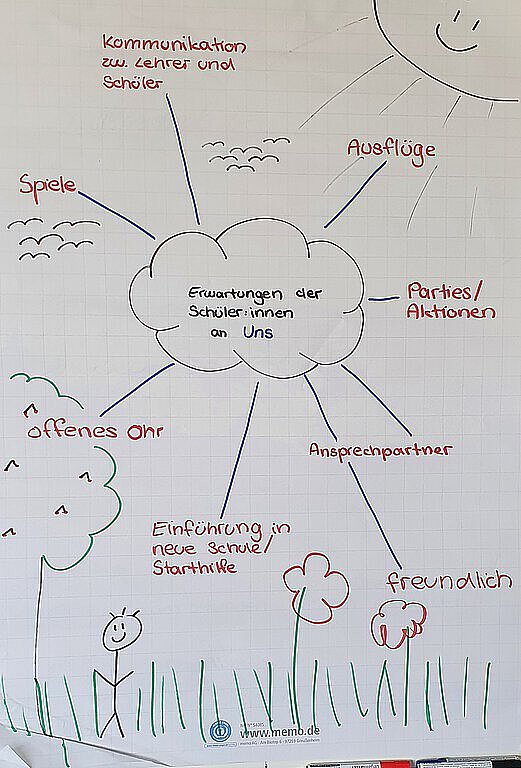 Kommunikation
zw. Lehrer und
Schüler
Ausflüge
Spiele
Erwartungen der
Schüler:innen
an Uns
Parties/
Aktionen
offenes Ohr
Ansprechpartner
Einführung in
neue Schule/
Starthilfe
freundlich
www.memo.de